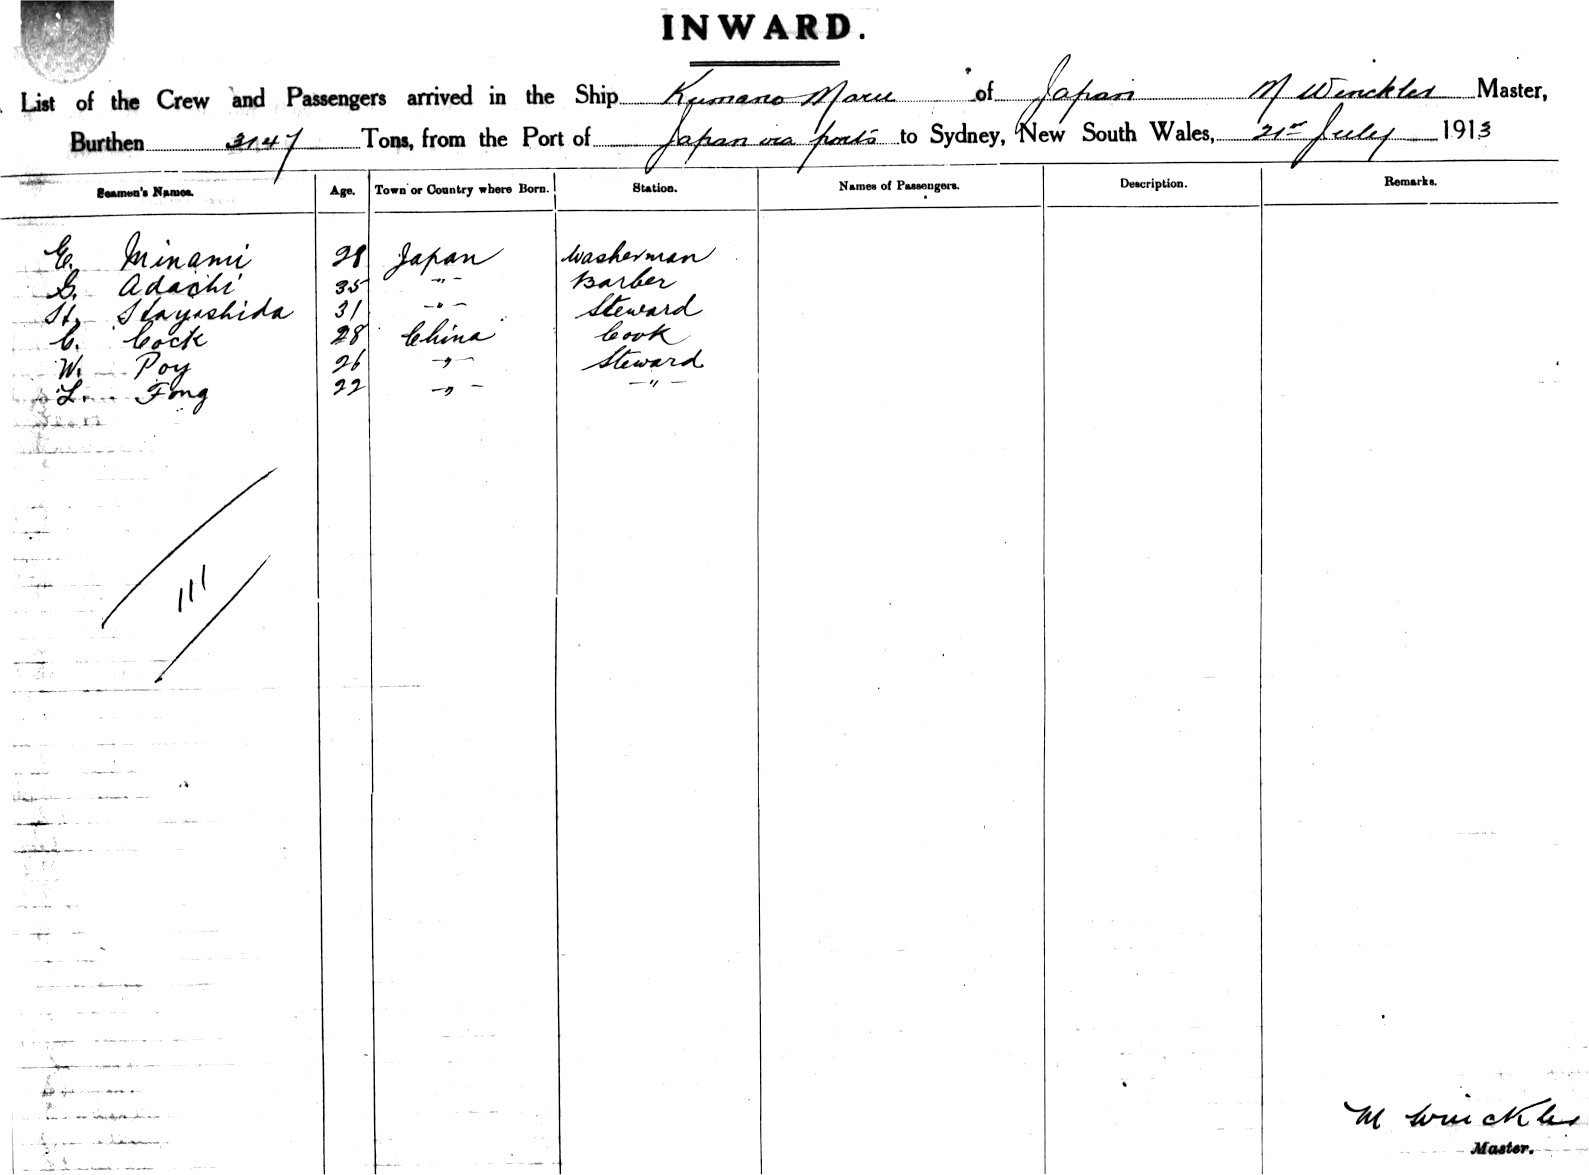 INWARD.
List of the Crew and Passengers arrived in the Ship Kumano Maru of Japan M Winckler Master,
Burthen 3147 Tons, from the Port of Japan via ports to Sydney, New South Wales, 21st July 1913
Seamen's Names. Age. Town or Country where Born. Station. Names of Passengers. Description. Remarks.
E. Minami 28 Japan Washerman
G. Adachi 35 -"- Barber
H. Hayashida 31 -"- Steward
C. Cock 28 China Cook
W. Poy 26 -"- Steward
L. Fong 22 -"- -"-
111
M Winckler
Master.